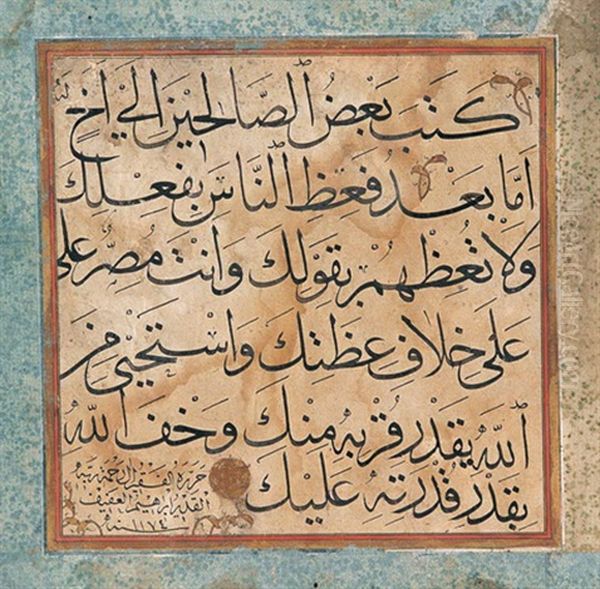 كتب بعض الصالحين الى اخ له
اما بعد فعظ الناس بفعلك
ولا تعظهم بقولك وانت مصر على
على خلاف عظتك واستحيى من
الله بقدر قربه منك وخف الله
بقدر قدرته عليك
حرره الفقير الى رحمة ربه
القدير ابراهيم العفيف
سنة ١١٧٤